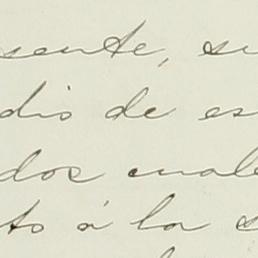 sente, su
dio de es
dos cuale
to á la s